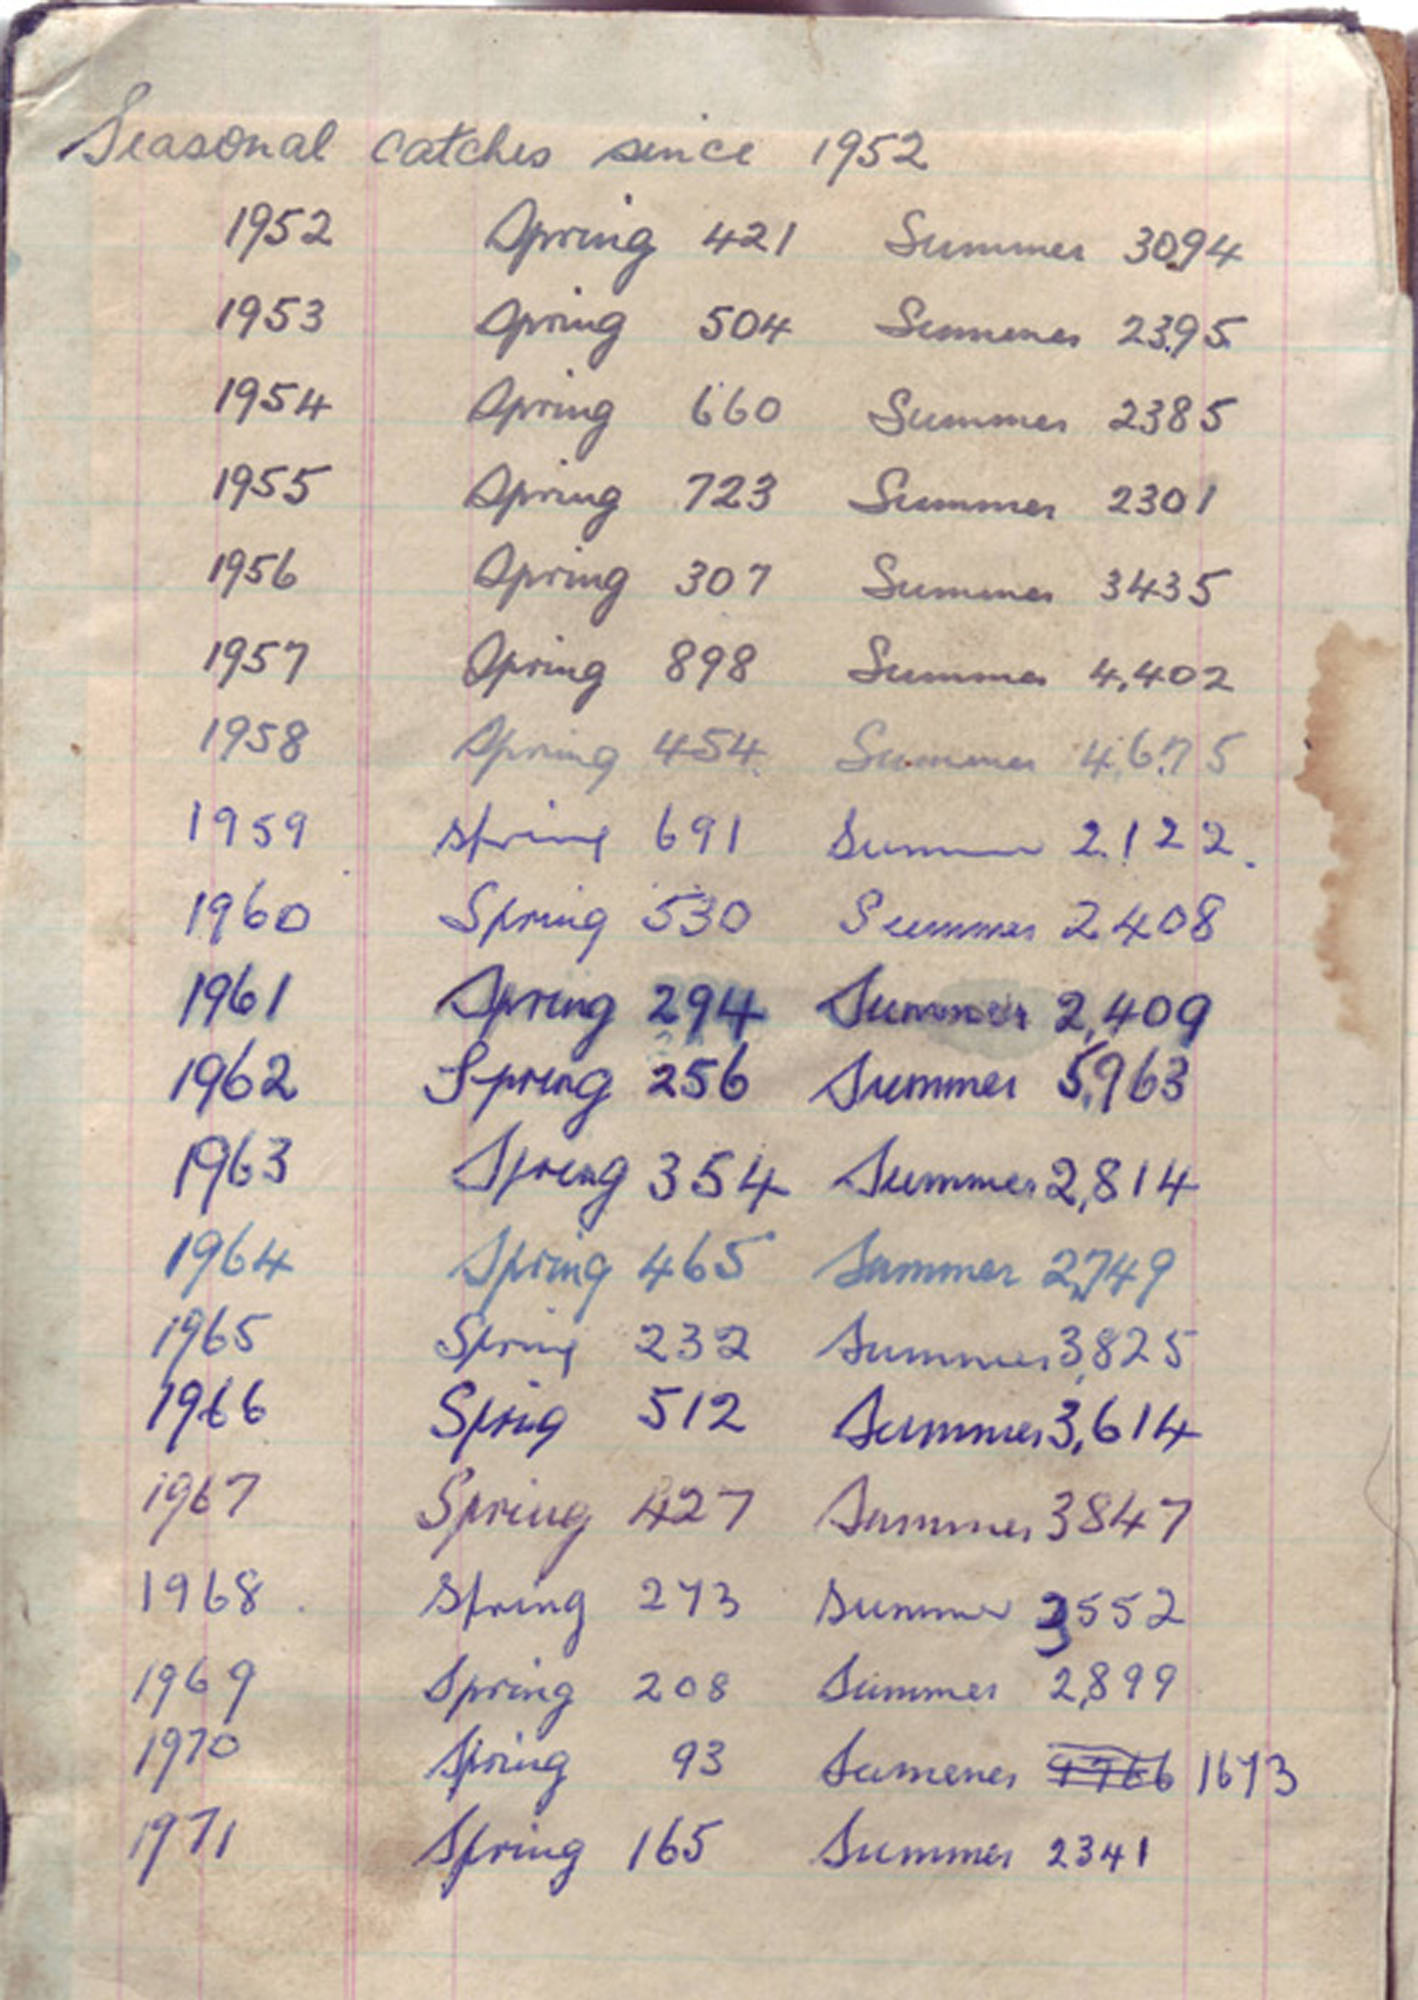 Seasonal catches since 1952
1952 Spring 421 Summer 3094
1953 Spring 504 Summer 2395
1954 Spring 660 Summer 2385
1955 Spring 723 Summer 2301
1956 Spring 307 Summer 3435
1957 Spring 898 Summer 4,402
1958 Spring 454 Summer 4,675
1959 Spring 691 Summer 2,122.
1960 Spring 530 Summer 2408
1961 Spring 294 Summer 2,409
1962 Spring 256 Summer 5,963
1963 Spring 354 Summer 2,814
1964 Spring 465 Summer 2,749
1965 Spring 232 Summer 3,825
1966 Spring 512 Summer 3,614
1967 Spring 427 Summer 3847
1968 Spring 273 Summer 3552
1969 Spring 208 Summer 2,899
1970 Spring 93 Summer 1673
1971 Spring 165 Summer 2341